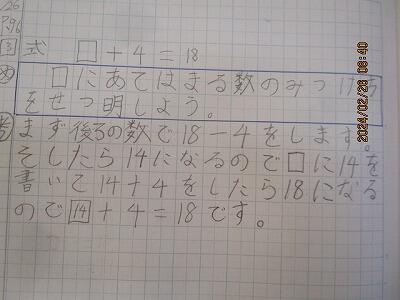 26
P.96
3 式 □+4=18
め □にあてはまる数のみつけ方
をせつ明しよう。
まず後ろの数で18-4をします。
そしたら14になるので□に14を
書いて14+4をしたら18になる
ので14+4=18です。
2024/02/29 09:40